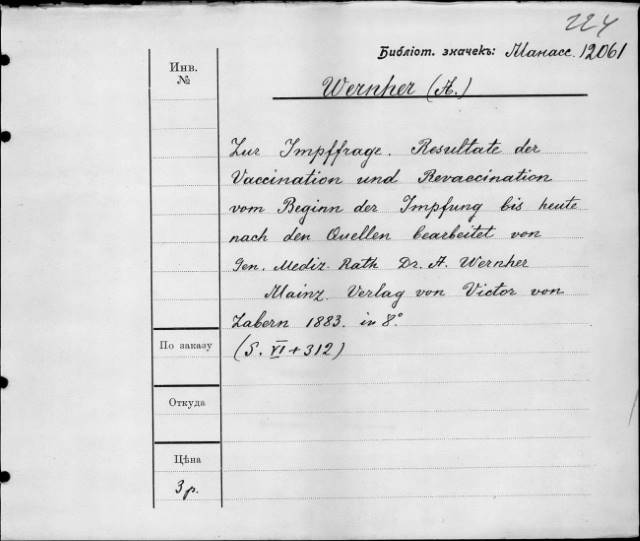 224
Библіот. значекъ: Манасс. 12061
Инв.
№
Wernher (A.)
Zur Impffrage. Resultate der
Vaccination und Revaccination
vom Beginn der Impfung bis heute
nach den Quellen bearbeitet von
Gen. Mediz. Rath Dr. A. Wernher
Mainz. Verlag von Victor von
Zabern 1883. in 8°
(S. VI + 312)
По заказу
Откуда
Цѣна
3 р.